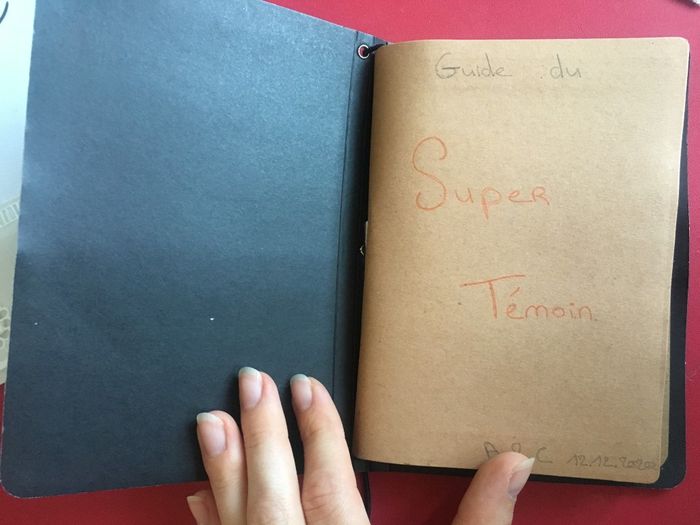 Guide du
Super
Témoin
A & C 12.12.2020